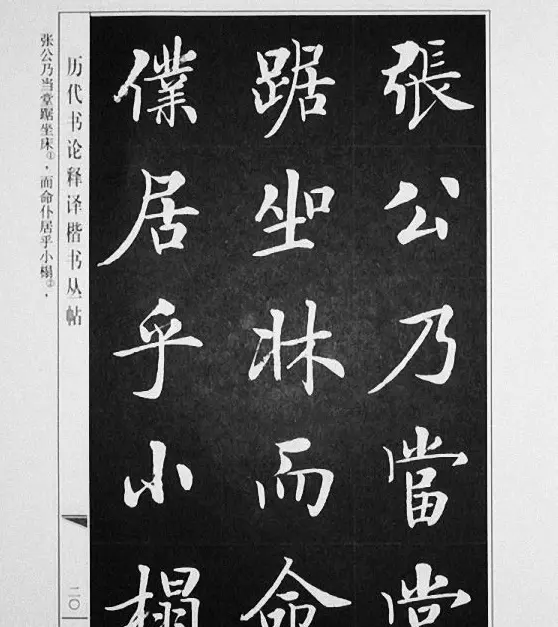 張公乃當堂
踞坐牀而命
僕居乎小榻
历代书论释译楷书丛帖
二〇
张公乃当堂踞坐床①，而命仆居乎小榻②，